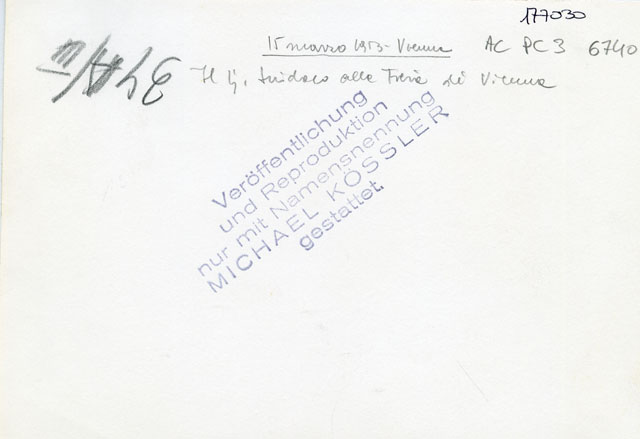 177030
15 marzo 1953 - Vienna AC PC 3 6740
Il Sindaco alla Fiera di Vienna
Veröffentlichung
und Reproduktion
nur mit Namensnennung
MICHAEL KÖSSLER
gestattet